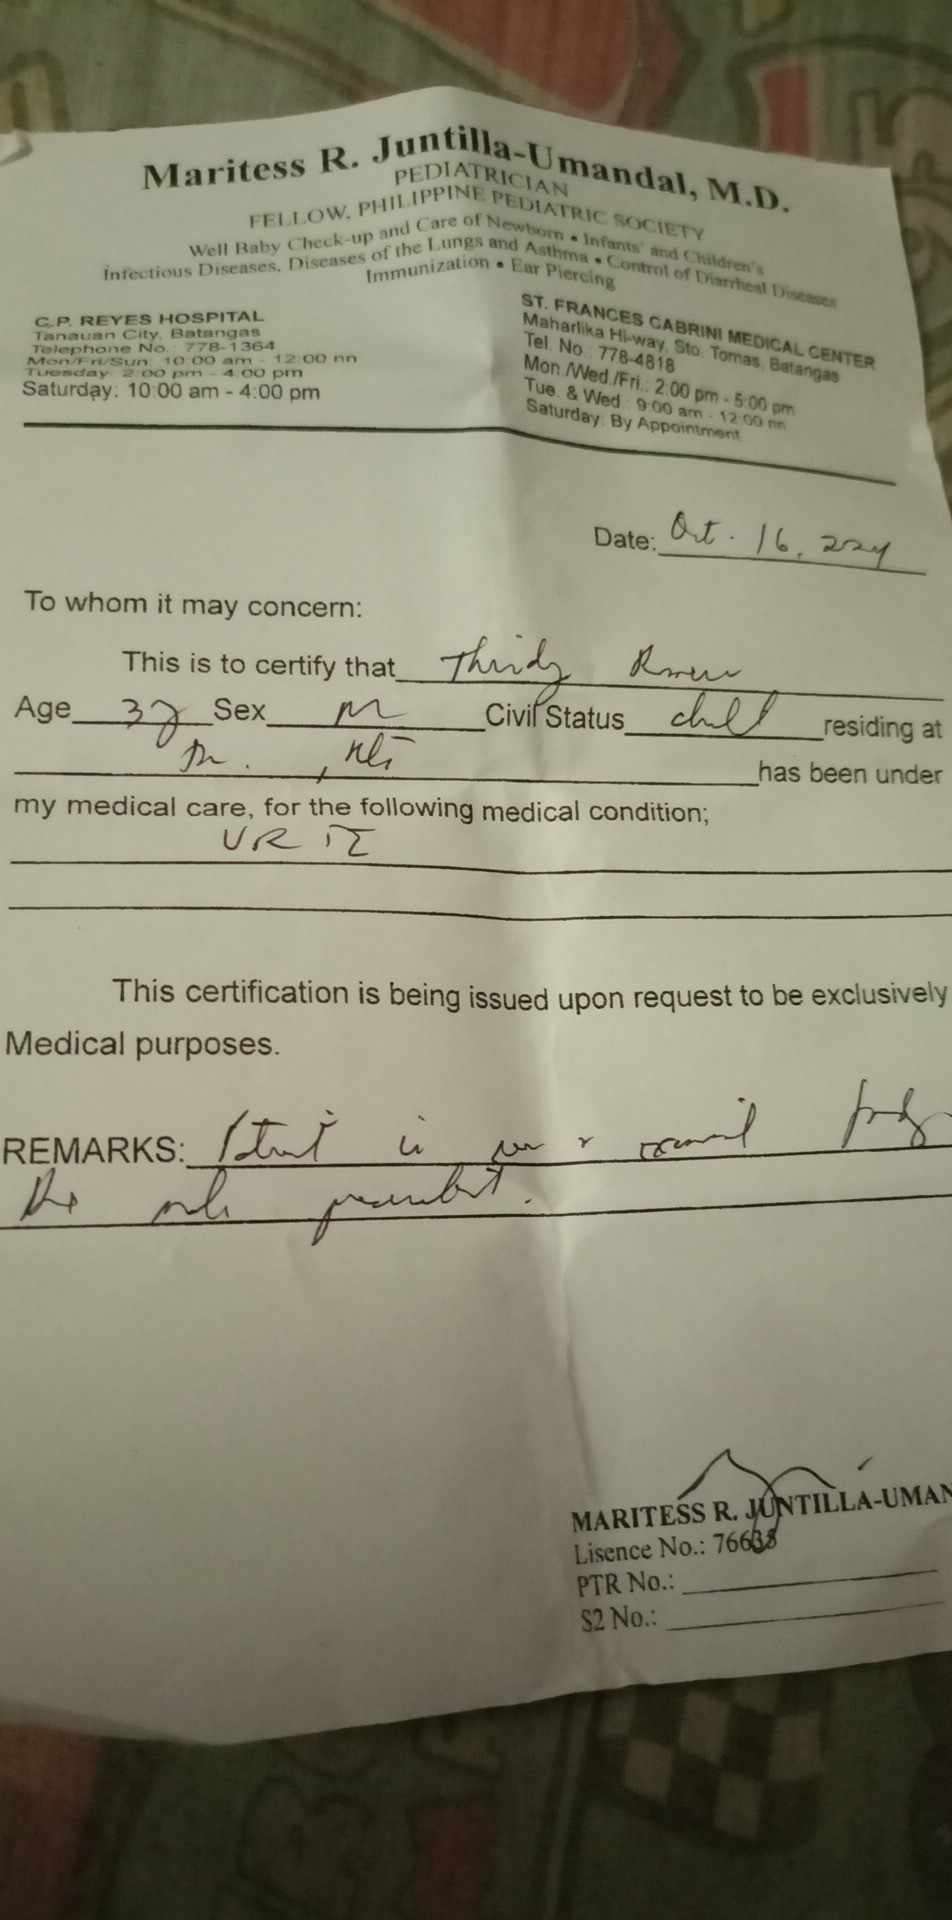 Maritess R. Juntilla-Umandal, M.D.
PEDIATRICIAN
FELLOW, PHILIPPINE PEDIATRIC SOCIETY
Well Baby Check-up and Care of Newborn • Infants' and Children's
Infectious Diseases, Diseases of the Lungs and Asthma • Control of Diarrheal Diseases
Immunization • Ear Piercing
C.P. REYES HOSPITAL
Tanauan City, Batangas
Telephone No. 778-1364
Mon/Fri/Sun: 10:00 am - 12:00 nn
Tuesday: 2:00 pm - 4:00 pm
Saturday: 10:00 am - 4:00 pm
ST. FRANCES CABRINI MEDICAL CENTER
Maharlika Hi-way, Sto. Tomas, Batangas
Tel. No.: 778-4818
Mon./Wed./Fri.: 2:00 pm - 5:00 pm
Tue. & Wed.: 9:00 am - 12:00 nn
Saturday: By Appointment
Date: Oct. 16, 2024
To whom it may concern:
This is to certify that
Age 3y Sex M Civil Status child residing at
has been under
my medical care, for the following medical condition;
This certification is being issued upon request to be exclusively
Medical purposes.
REMARKS: is
the
MARITESS R. JUNTILLA-UMAN
Lisence No.: 76638
PTR No.:
S2 No.: